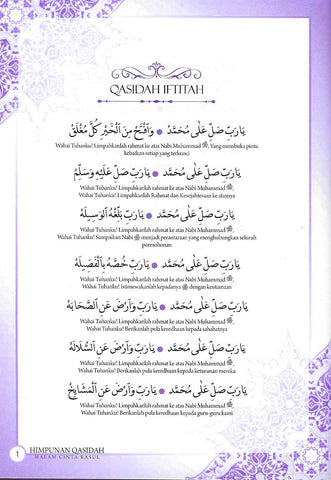 QASIDAH IFTITAH
يَارَبِّ صَلِّ عَلٰى مُحَمَّدْ ۞ وَافْتَحْ مِنَ الْخَيْرِ كُلَّ مُغْلَقْ
Wahai Tuhanku! Limpahkanlah rahmat ke atas Nabi Muhammad ﷺ, Yang membuka pintu
kebaikan setiap yang terkunci
يَارَبِّ صَلِّ عَلٰى مُحَمَّدْ ۞ يَارَبِّ صَلِّ عَلَيْهِ وَسَلِّمْ
Wahai Tuhanku! Limpahkanlah rahmat ke atas Nabi Muhammad ﷺ,
Wahai Tuhanku! Limpahkanlah Rahmat dan Kesejahteraan ke atasnya
يَارَبِّ صَلِّ عَلٰى مُحَمَّدْ ۞ يَارَبِّ بَلِّغْهُ الْوَسِيلَهْ
Wahai Tuhanku! Limpahkanlah rahmat ke atas Nabi Muhammad ﷺ,
Wahai Tuhanku! Sampaikan Nabi ﷺ menjadi perantaraan yang menghubungkan seluruh
permohonan
يَارَبِّ صَلِّ عَلٰى مُحَمَّدْ ۞ يَارَبِّ خُصَّهُ بِالْفَضِيلَهْ
Wahai Tuhanku! Limpahkanlah rahmat ke atas Nabi Muhammad ﷺ,
Wahai Tuhanku! Istimewakanlah kepadanya ﷺ dengan keutamaan
يَارَبِّ صَلِّ عَلٰى مُحَمَّدْ ۞ يَارَبِّ وَارْضَ عَنِ الصَّحَابَهْ
Wahai Tuhanku! Limpahkanlah rahmat ke atas Nabi Muhammad ﷺ,
Wahai Tuhanku! Berikanlah pula keredhaan kepada sahabatnya.
يَارَبِّ صَلِّ عَلٰى مُحَمَّدْ ۞ يَارَبِّ وَارْضَ عَنِ السُّلَالَهْ
Wahai Tuhanku! Limpahkanlah rahmat ke atas Nabi Muhammad ﷺ,
Wahai Tuhanku! Berikanlah pula keredhaan kepada keturunan mereka
يَارَبِّ صَلِّ عَلٰى مُحَمَّدْ ۞ يَارَبِّ وَارْضَ عَنِ الْمَشَايِخْ
Wahai Tuhanku! Limpahkanlah rahmat ke atas Nabi Muhammad ﷺ,
Wahai Tuhanku! Berikanlah pula keredhaan kepada guru-guru kami
1
HIMPUNAN QASIDAH
MALAM CINTA RASUL